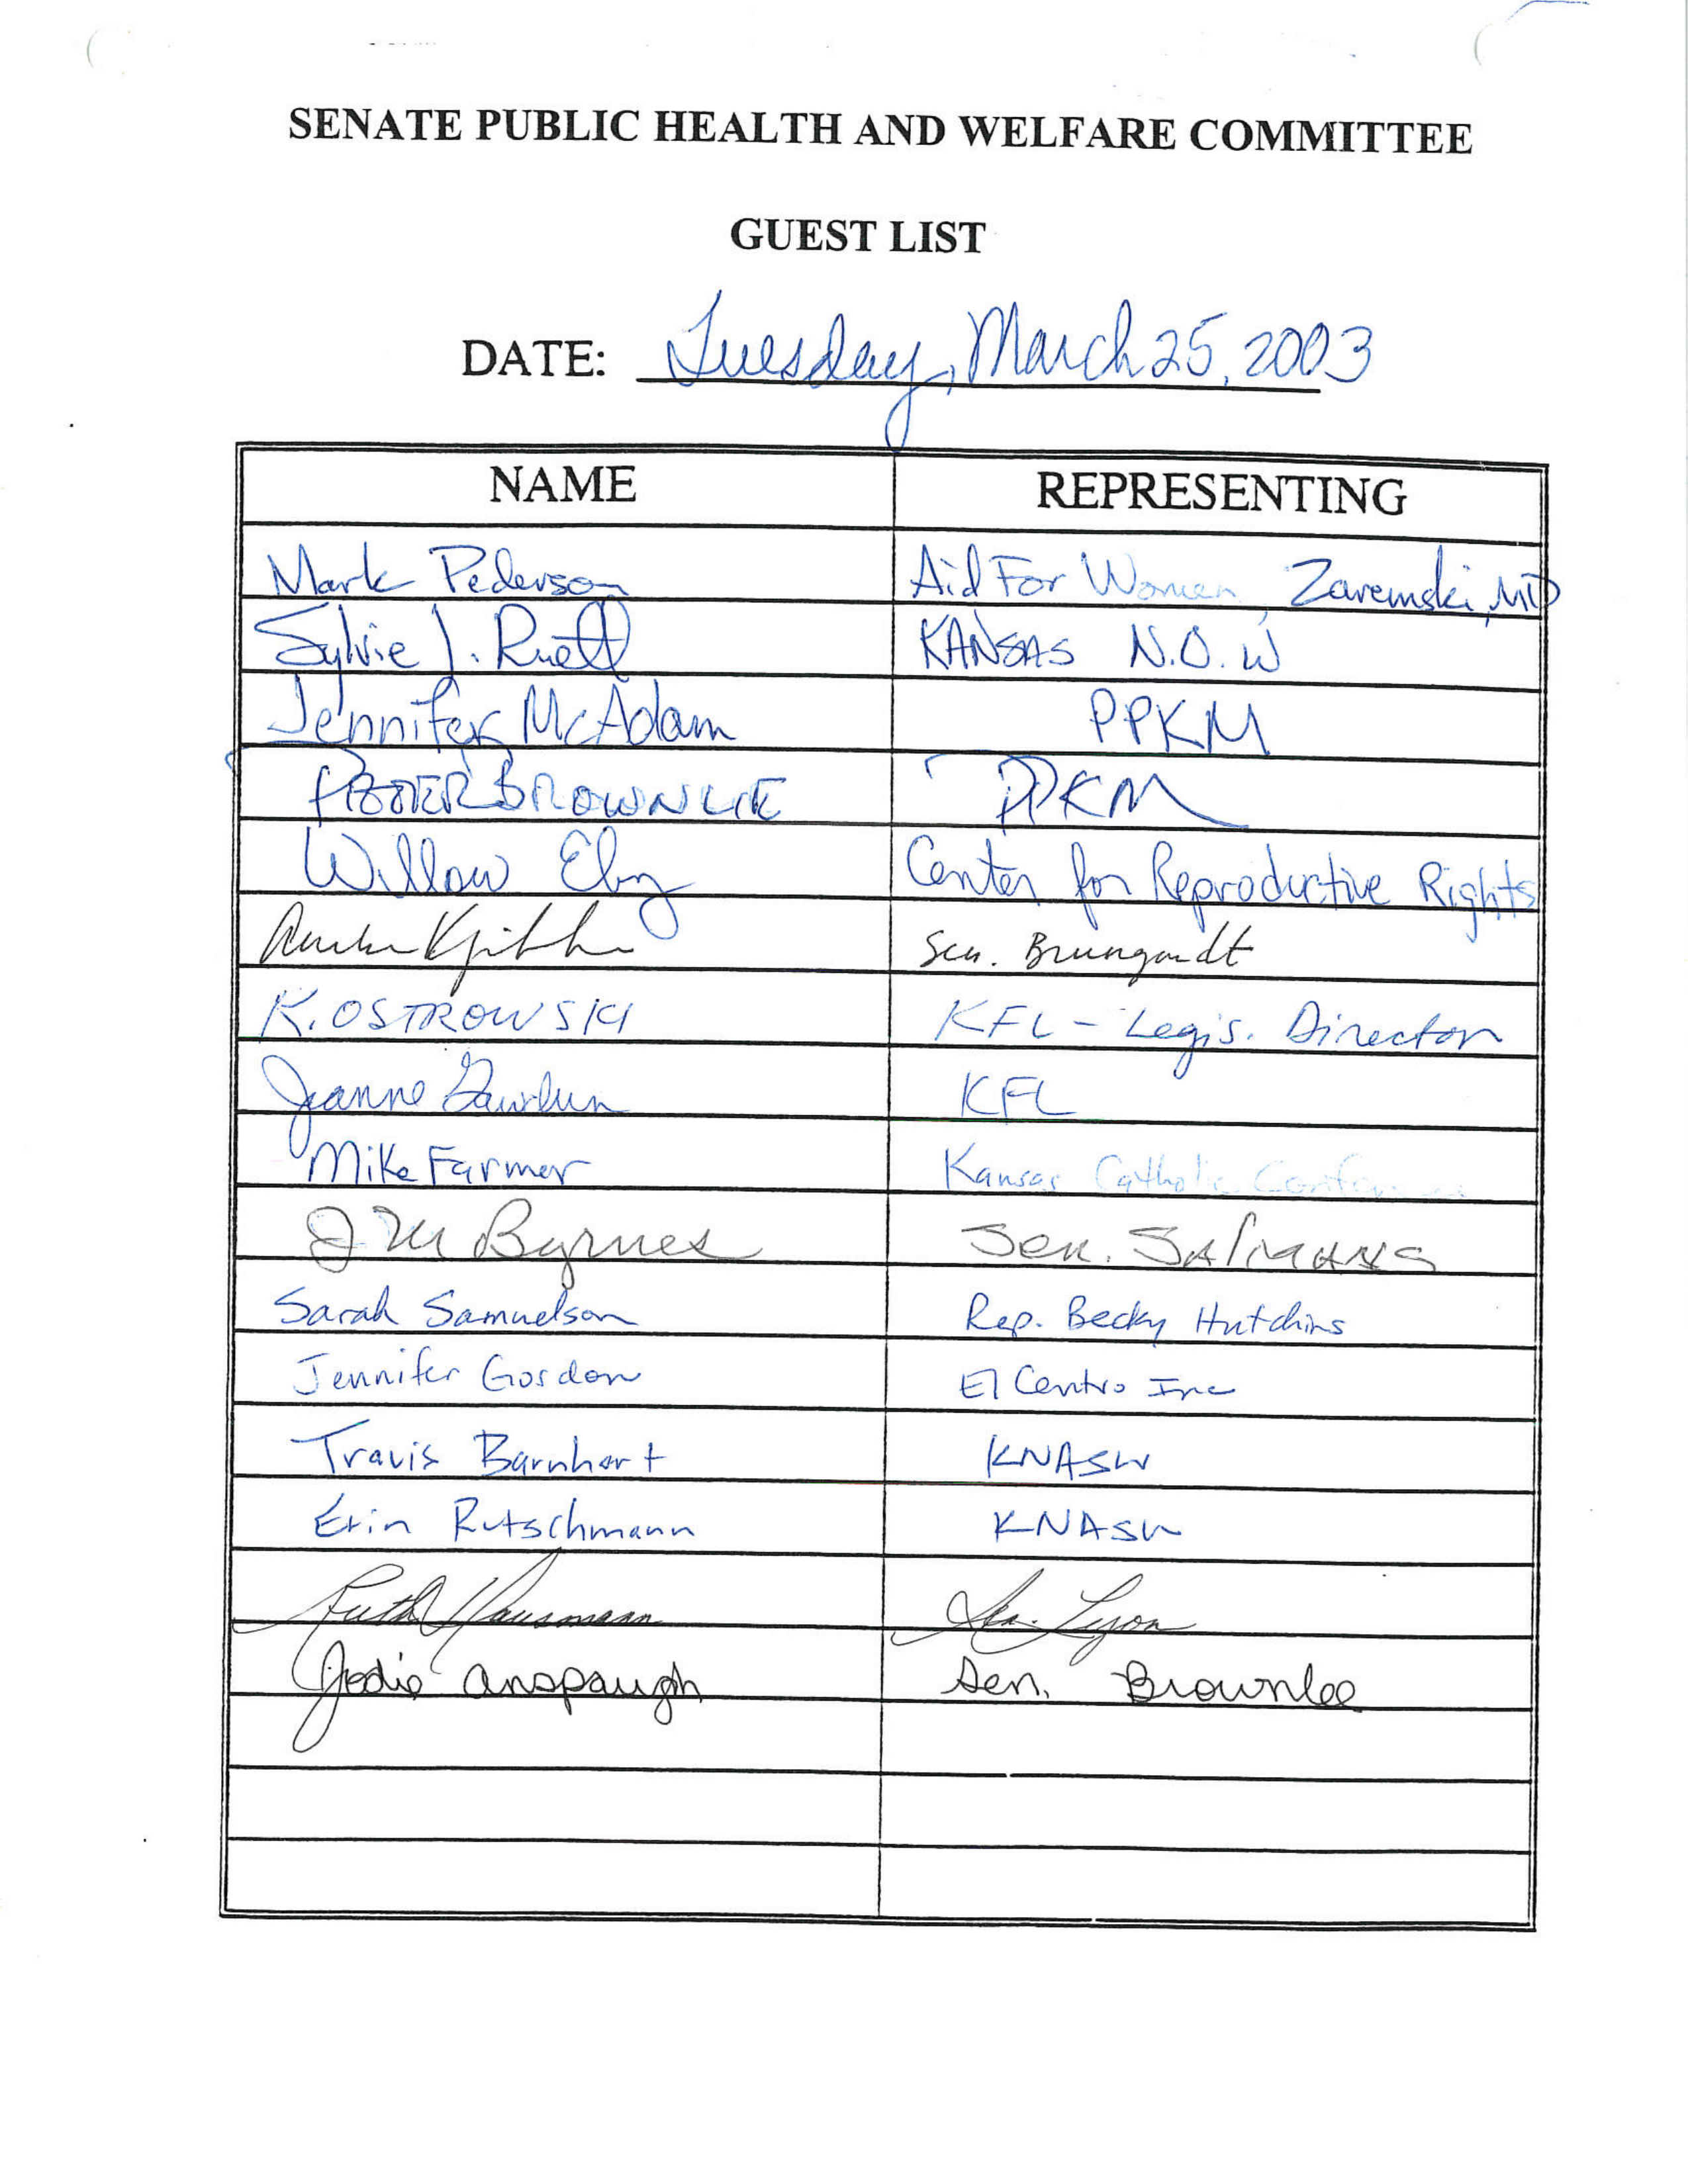 SENATE PUBLIC HEALTH AND WELFARE COMMITTEE
GUEST LIST
DATE: Tuesday, March 25, 2003
NAME REPRESENTING
Mark Pederson Aid For Women, Zaremski, MD
Sylvie J. Rueff KANSAS N.O.W
Jennifer McAdam PPKM
PETER BROWNLIE PPKM
Willow Eby Center for Reproductive Rights
Sen. Brungardt
K. OSTROWSKI KFL - Legis. Director
Jeanne Gawdun KFL
Mike Farmer Kansas Catholic Conference
J M Byrnes Sen. Salmans
Sarah Samuelson Rep. Becky Hutchins
Jennifer Gordon El Centro Inc
Travis Barnhart KNASW
Erin Rutschmann KNASW
Ruth Hausmann Sen. Lyon
Jodie Anspaugh Sen. Brownlee